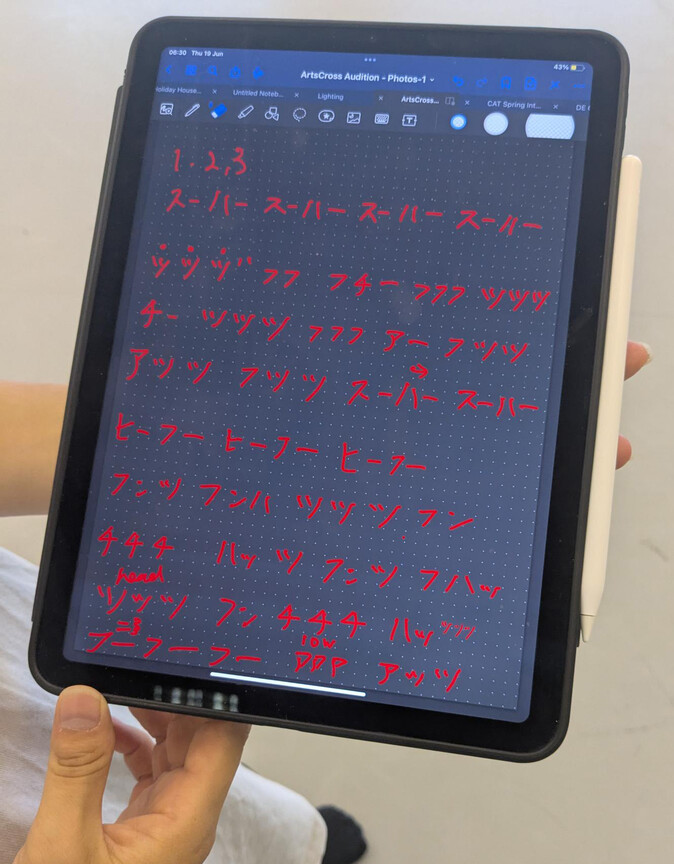 06:30 Thu 19 Jun 43%
ArtsCross Audition – Photos-1
oliday House... Untitled Noteb... Lighting ArtsCross... CAT Spring Int... DE
1.2,3
スーハー スーハー スーハー スーハー
ツ ツ ツ フフ フチー フフフ ツツツ
チー ツツツ フフフ アー フツツ
アツツ フツツ スーハー スーハー
ヒーフー ヒーフー ヒーフー
フンツ フンハ ツツツ フン
チチチ ハッツ フンツ フハッ
head
ツツツ フン チチチ ハッツツツ
low
フーフーフー アッツ